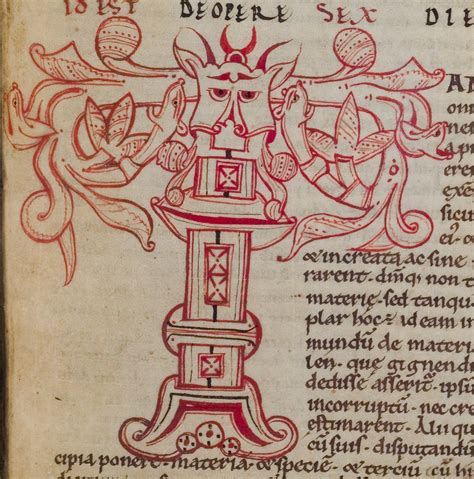 ID IST DE OPERE SEX DIE
AN
om
a p
eren
exe
sicu
ei᷒ & e
& increata ac sine
rarent · dm̄q; non
materie · sed tanqu
plar hoc ē ideam in
mundū de materia
len · que gignendi
dedisse asserit᷑ · ipsū
incorruptū · nec cre
estimarent · Alii qu
cū suis · disputandū
cipia poner̄t · materiā & speciē · & terciū cū hi